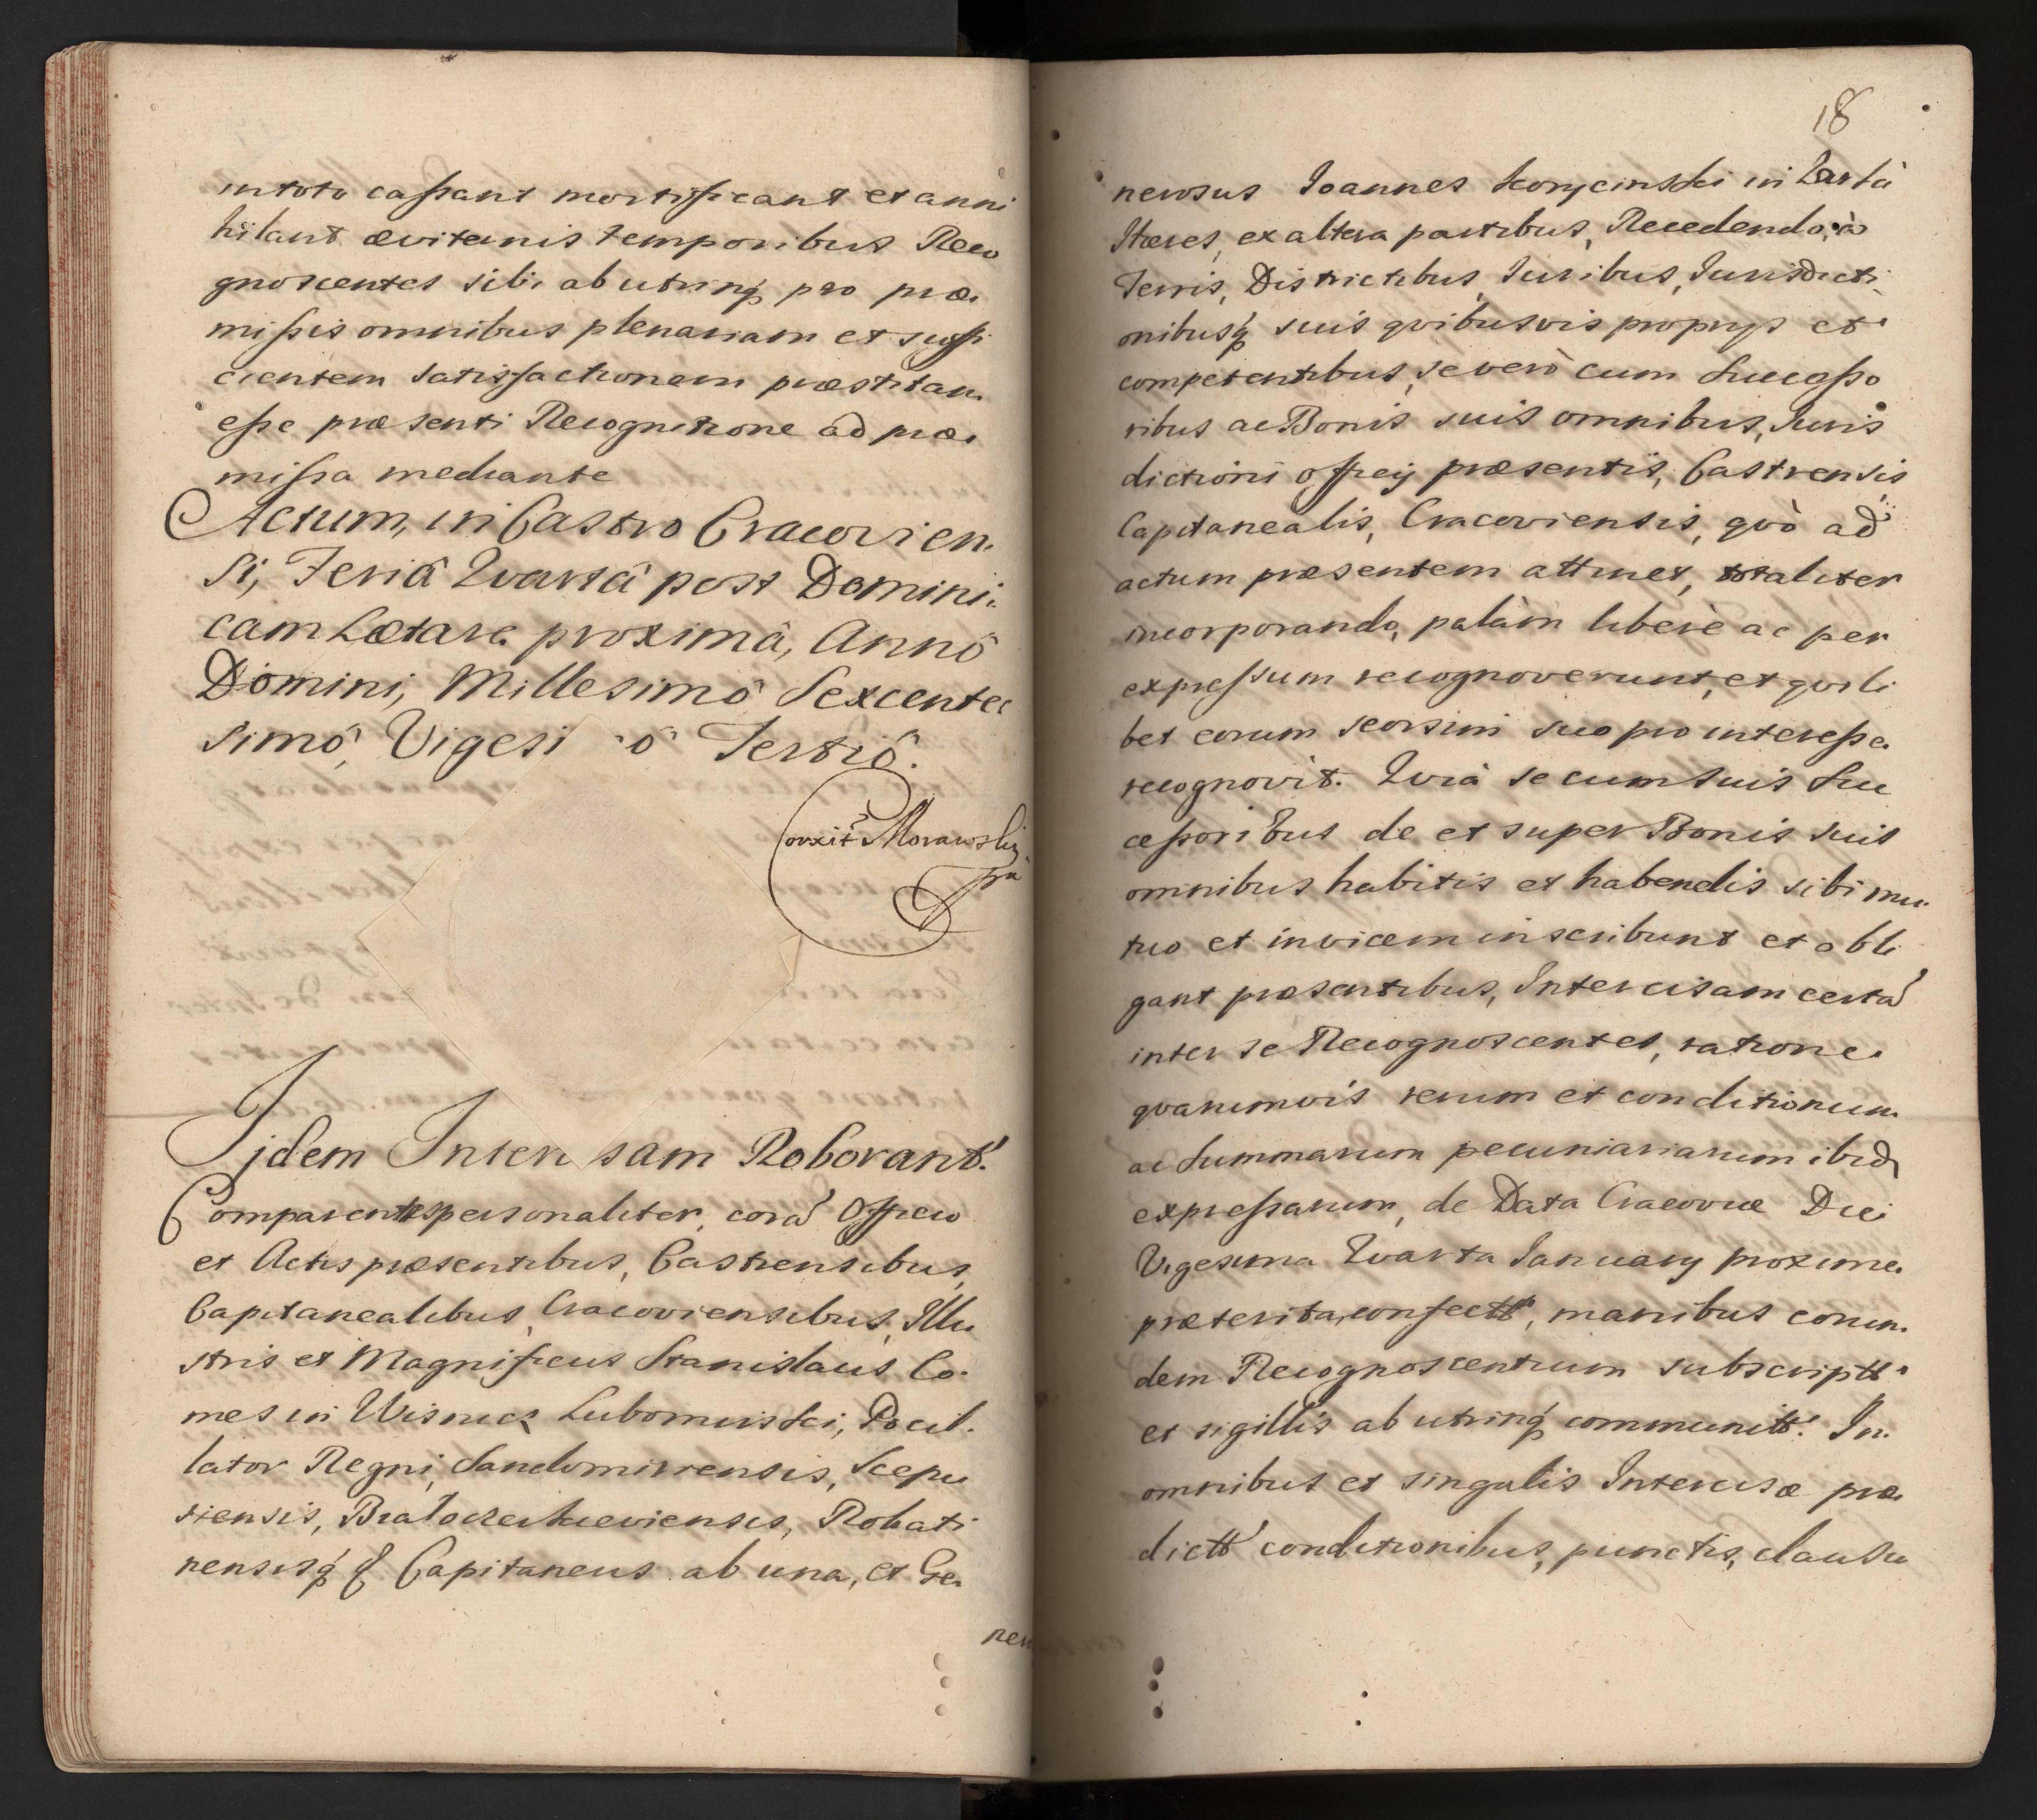 in toto cassant mortificant et anni
hilant æviternis temporibus Reco
gnoscentes sibi ab utrinq́ pro præ
missis omnibus plenariam et suffi
cientem satisfactionem præstitam
esse præsenti Recognitione ad præ
missa mediante
Actum, in Castro Cracovien
si, Feriâ Quartâ post Domini
cam Lætare proximâ, Annô
Domini, Millesimô Sexcente
simô, Vigesi ô Tertiô.
Corexit Morawski
Ijdem Inter sam Roborant.
Comparentes personaliter, corã Officio
et Actis præsentibus, Castrensibus,
Capitanealibus, Cracoviensibus, Illu
stris et Magnificus Stanislaus Co
mes in Wisnicz Lubomirski, Pocil
lator Regni, Sandomiriensis, Scepu
siensis, Białocerkieviensis, Rohati
nensisq́ Capitaneus ab una, et Ge
ner
18
nerosus Ioannes Korycinski in
Hæres, ex altera partibus, Recedendo, à
Terris, Districtibus, Iuribus, Iurisdicti
onibusq́ suis qvibusvis proprys et
competentibus, se verò cum Successo
ribus ac Bonis suis omnibus, Iuris
dictioni officij præsentis, Castrensis
Capitanealis, Cracoviensis, qvò ad
actum præsentem attinet, totaliter
incorporando, palàm liberè ac per
expressum recognoverunt, et qvili
bet eorum seorsim suo pro interesse
recognovit. Qvià se cum suis Suc
cessoribus de et super Bonis suis
omnibus habitis et habendis sibi mu
tuo et invicem inscribunt et obli
gant præsentibus, Intercisam certã
inter se Recognoscentes, ratione
qvarumvis rerum et conditionum
ac Summarum pecuniariarum ibid
expressarum, de Data Cracoviæ Die
Vigesima Qvarta Ianuary proxime
præterita, confectt, manibus eorun
dem Recognoscentium subscriptt
et sigillis ab utrinq́ communitt. In
omnibus et singulis Intercisæ præ
dictt conditionibus, punctis, clausu